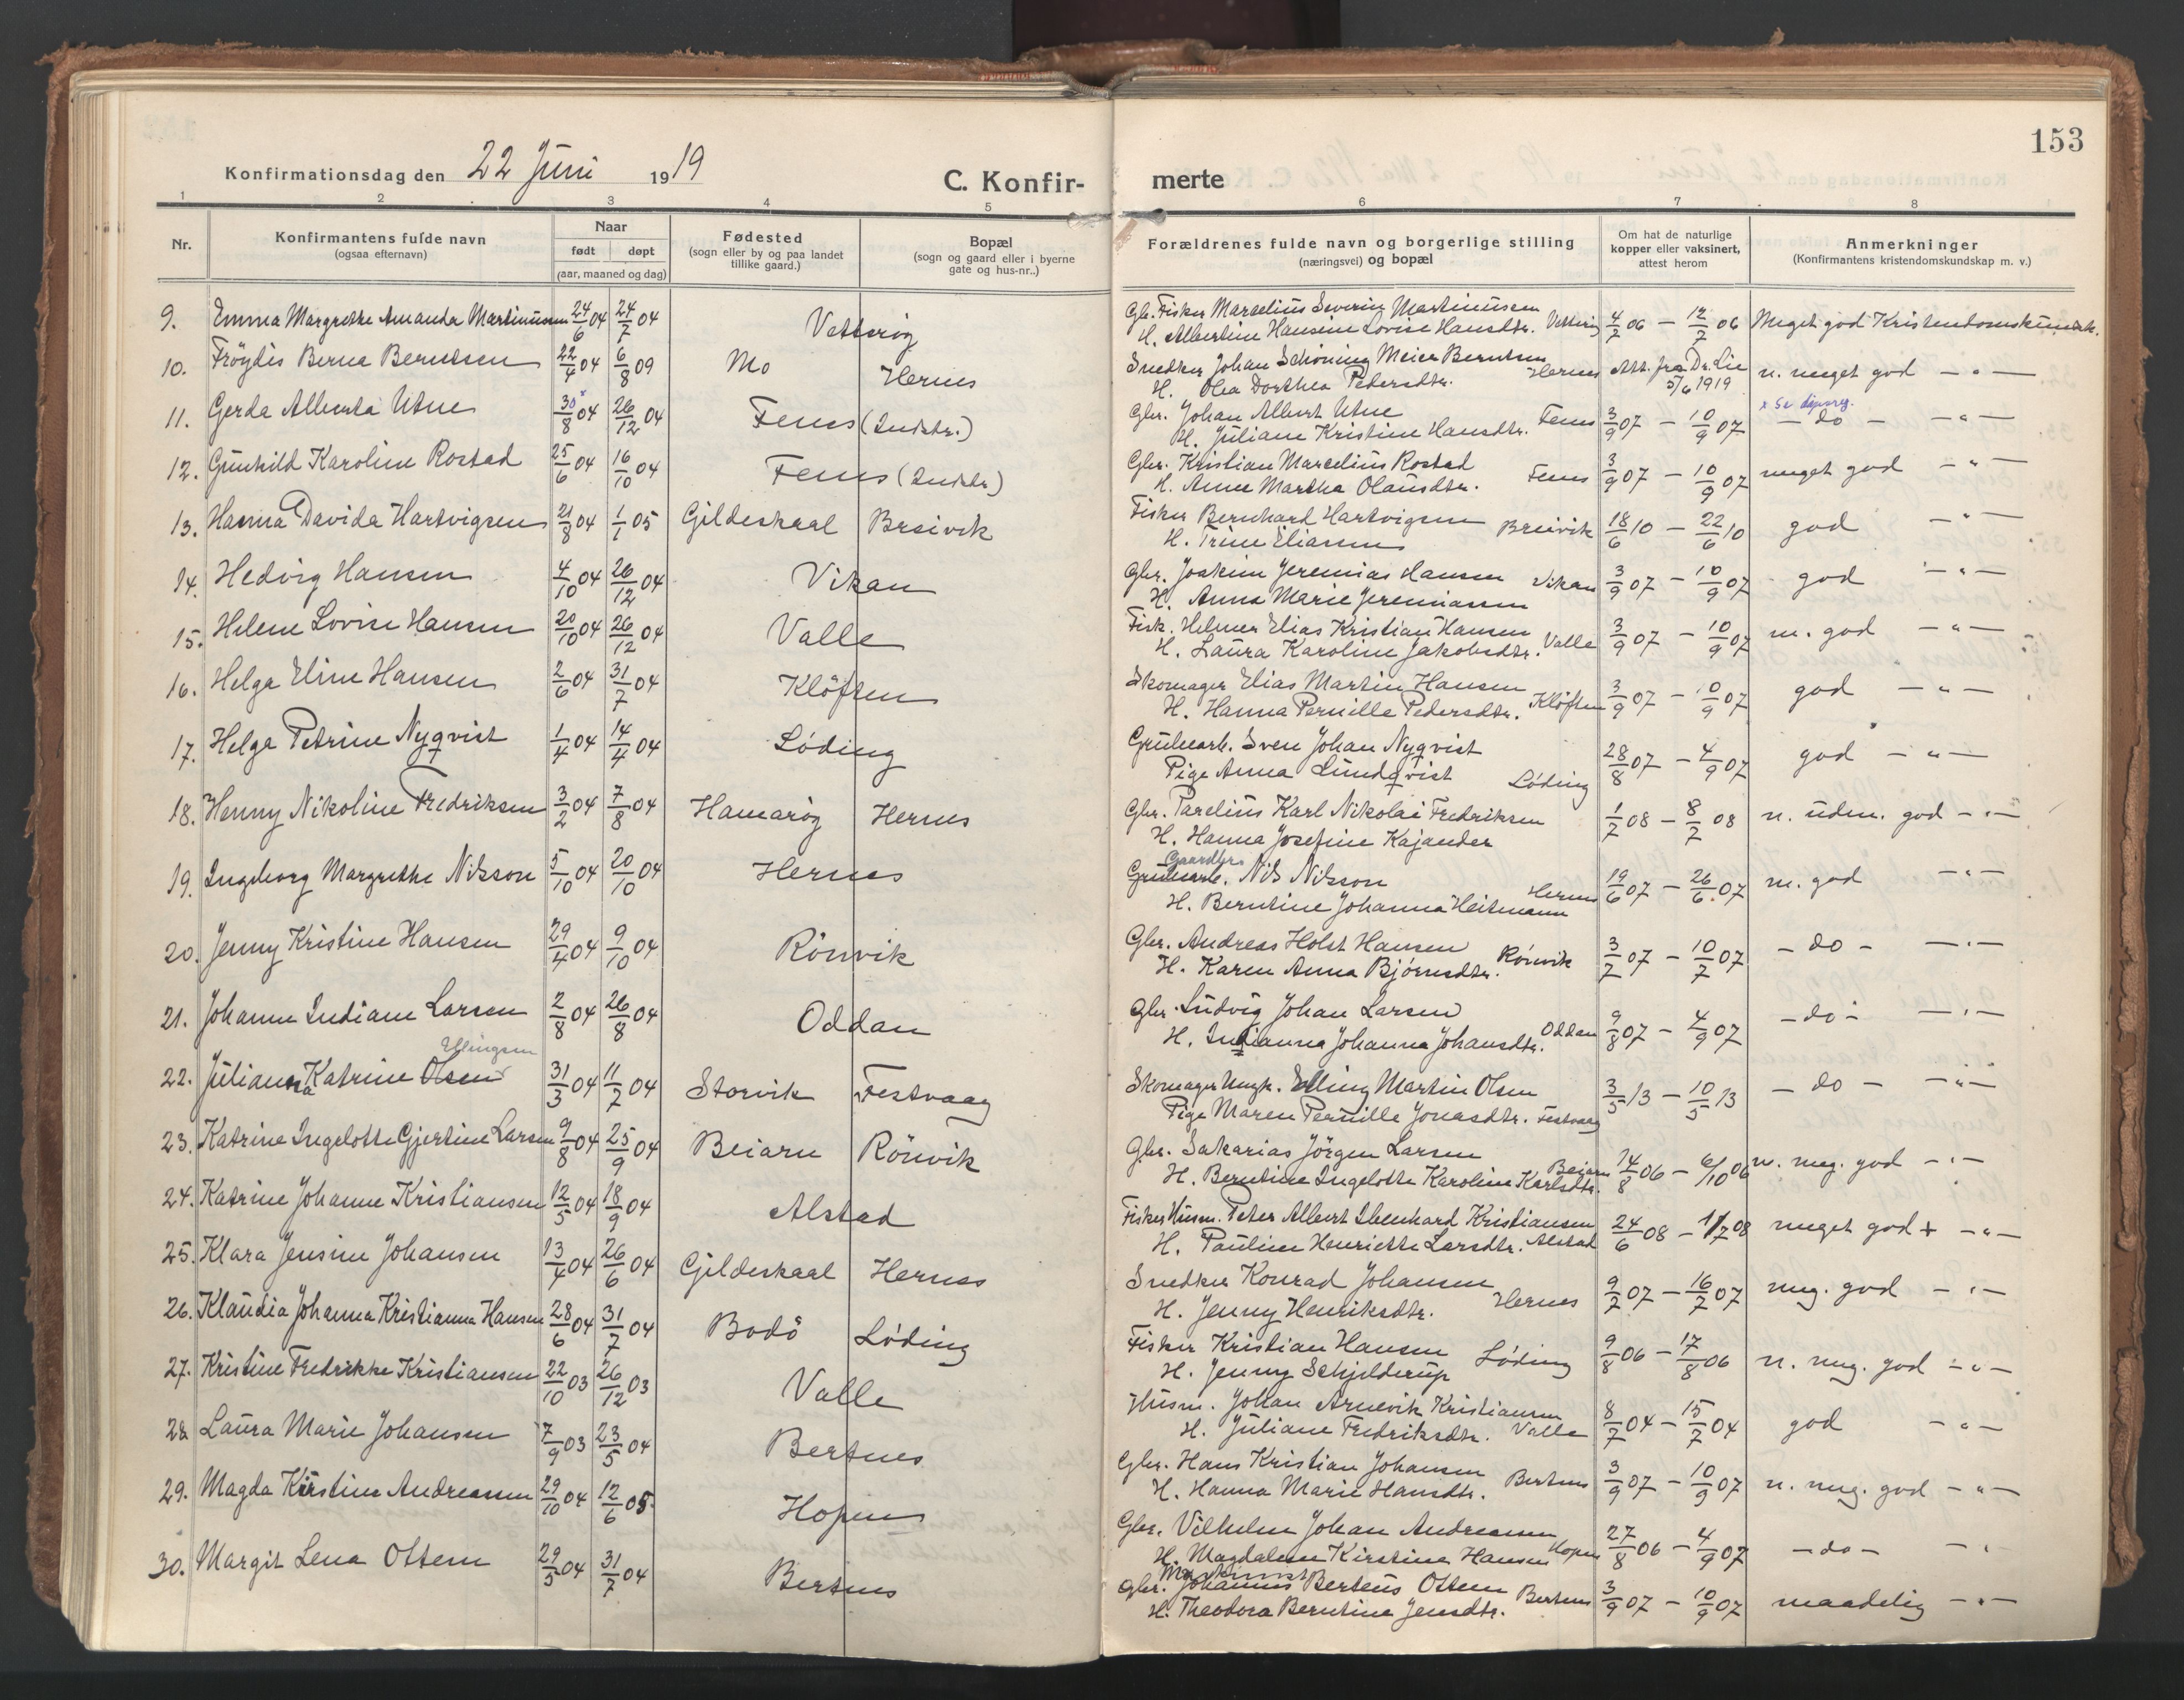 153
Konfirmationsdag den 22 Juni 1919
C. Konfir- merte
1 2 3 4 5 6 7 8
Nr.
Konfirmantens fulde navn
(ogsaa efternavn)
Naar
født døpt
(aar, maaned og dag)
Fødested
(sogn eller by og paa landet
tillike gaard.)
Bopæl
(sogn og gaard eller i byerne
gate og hus-nr..)
Forældrenes fulde navn og borgerlige stilling
(næringsvei) og bopæl
Om hat de naturlige
kopper eller vaksinert,
attest herom
Anmerkninger
(Konfirmantens kristendomskundskap m. v.)
9. Emma Margrethe Amanda Martinussen 24/6 04 24/7 04 Vetterøy Gbr. Fisker Marselius Severin Martinussen
H. Albertine Hansine Lovise Hansdtr. 4/7 06 – 12/7 06 Meget god Kristendomskundsk.
10. Fröydis Berna Berntsen 22/4 04 6/8 09 Mo Hernes Snedker Johan Schöning Meier Berntsen
H. Olea Dorthea Pedersdtr. Hernes Att. fra Dr. Lie n. meget god – " –
5/6 1919
x Se dåpsreg.
11. Gerda Alberta Utne 30x/8 04 26/12 04 Fenes (Indstr.) Gbr. Johan Albert Utne
H. Juliane Kristine Hansdtr. Fenes 3/9 07 – 10/9 07 – do – – " –
12. Gunhild Karoline Rostad 25/6 04 16/10 04 Fenes (Indstr.) Gbr. Kristian Marselius Rostad
H. Anne Martha Olausdtr. Fenes 3/9 07 – 10/9 07 meget god – " –
13. Hanna Davida Hartvigsen 21/8 04 1/1 05 Gildeskaal Breivik Fisker Bernhard Hartvigsen
H. Trine Eliassen Breivik 18/6 10 – 22/6 10 god – " –
14. Hedvig Hansen 4/10 04 26/12 04 Vikan Gbr. Joakim Jeremias Hansen Vikan
H. Anna Marie Jeremiassen 3/9 07 – 10/9 07 god – " –
15. Helene Lovise Hansen 20/10 04 26/12 04 Valle Fisk. Helmer Elias Kristian Hansen
H. Laura Karoline Jakobsdtr. Valle 3/9 07 – 10/9 07 m. god – " –
16. Helga Eline Hansen 2/6 04 31/7 04 Klöften Skomager Elias Martin Hansen
H. Hanna Pernille Pedersdtr. Klöften 3/9 07 – 10/9 07 god – " –
17. Helga Petrine Nyqvist 1/4 04 14/4 04 Løding Grubearb. Sven Johan Nyqvist
Pige Anna Lundqvist Løding 28/8 07 – 4/9 07 god – " –
18. Henny Nikoline Fredriksen 3/2 04 7/8 04 Hamarøy Hernes Gbr. Parelius Karl Nikolai Fredriksen
H. Hanna Josefine Kajander 1/7 08 – 8/7 08 n. udm. god – " –
Gaardbr.
19. Ingeborg Margrethe Nilsson 5/10 04 20/10 04 Hernes Grubearb. Nils Nilsson
H. Berntine Johanna Heitmann Hernes 19/6 07 – 26/6 07 m. god – " –
20. Jenny Kristine Hansen 29/4 04 9/10 04 Rönvik Gbr. Andreas Holst Hansen
H. Karen Anna Bjørnsdtr. Rönvik 3/7 07 – 10/7 07 – do – – " –
21. Johanne Indiane Larsen 2/8 04 26/8 04 Oddan Gbr. Ludvig Johan Larsen
H. Indianna Johanna Johansdtr. Oddan 9/8 07 – 4/9 07 – do – – " –
Ellingsen
22. Julianna Katrine Olsen 31/3 04 11/7 04 Storvik Festvaag Skomager Ungk. Elling Martin Olsen
Pige Maren Pernille Jonasdtr. Festvaag 3/5 13 – 10/5 13 – do – – " –
23. Katrine Ingelotte Gjertine Larsen 9/8 04 25/9 04 Beiarn Rönvik Gbr. Sakarias Jörgen Larsen
H. Berntine Ingelotte Karoline Karlsdtr. Beiarn 14/8 06 – 6/10 06 n. meg. god – " –
24. Katrine Johanne Kristiansen 12/5 04 18/9 04 Alstad Fisker Husm. Peter Albert Ibenhard Kristiansen
H. Pauline Henriette Larsdtr. Alstad 24/6 08 – 1/7 08 meget god + – " –
25. Klara Jensine Johansen 13/4 04 26/6 04 Gildeskaal Hernes Snedker Konrad Johansen
H. Jenny Henriksdtr. Hernes 9/7 07 – 16/7 07 meg. god – " –
26. Klaudia Johanna Kristianna Hansen 28/6 04 31/7 04 Bodö Løding Fisker Kristian Hansen
H. Jenny Schjelderup Løding 9/8 06 – 17/8 06 n. meg. god – " –
27. Kristine Fredrikke Kristiansen 22/10 03 26/12 03 Valle Husm. Johan Arnevik Kristiansen
H. Juliane Fredriksdtr. Valle 8/7 04 – 15/7 04 god – " –
28. Laura Marie Johansen 7/9 03 23/5 04 Bertnes Gbr. Hans Kristian Johansen
H. Hanna Marie Hansdtr. Bertnes 3/9 07 – 10/9 07 n. meg. god – " –
29. Magda Kirstine Andreassen 29/10 04 12/6 05 Hopen Gbr. Vilhelm Johan Andreassen
H. Magdalena Kirstine Hansen Hopen 27/8 06 – 4/9 07 – do – – " –
30. Margit Lena Ottem 29/5 04 31/7 04 Bertnes Gbr. Johannes Berteus Ottem Bertnes
H. Theodora Berntine Jensdtr. 3/9 07 – 10/9 07 maadelig – " –